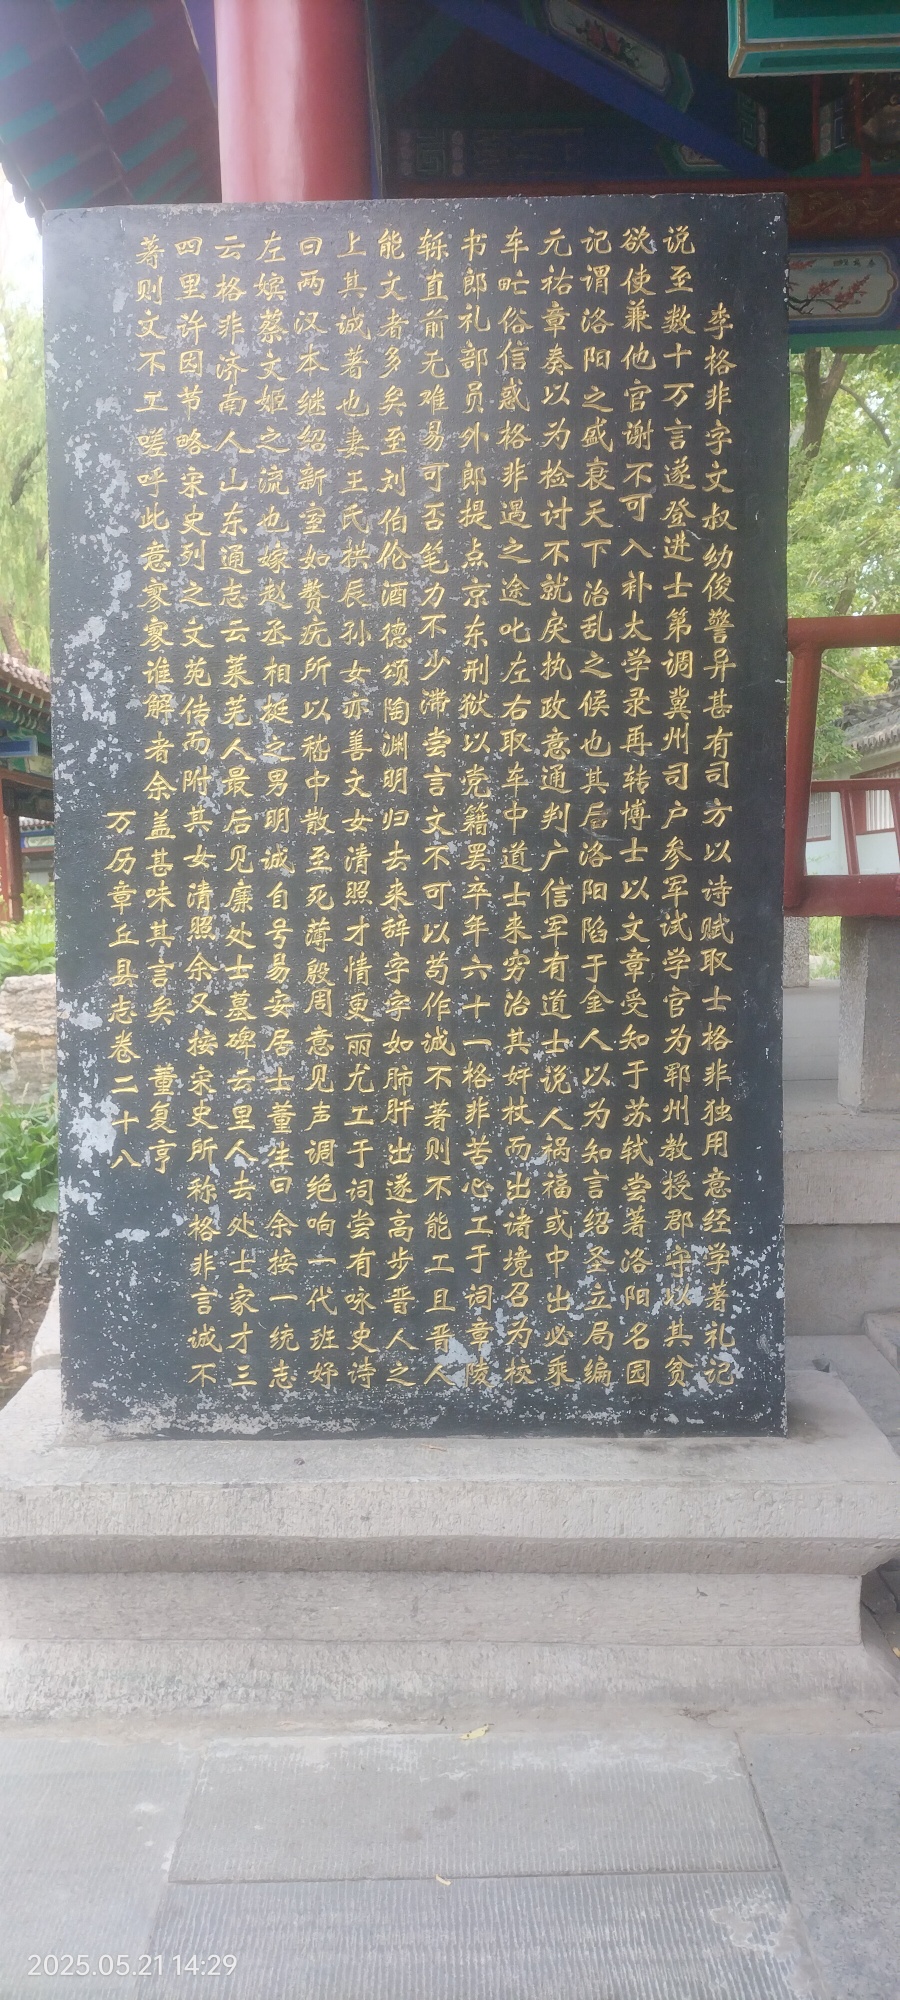 李格非字文叔幼俊警异甚有司方以诗赋取士格非独用意经学著礼记
说至数十万言遂登进士第调冀州司户参军试学官为郓州教授郡守以其贫
欲使兼他官谢不可入补太学录再转博士以文章受知于苏轼尝著洛阳名园
记谓洛阳之盛衰天下治乱之候也其后洛阳陷于金人以为知言绍圣立局编
元祐章奏以为检讨不就戾执政意通判广信军有道士说人祸福或中出必乘
车甿俗信惑格非遇之途叱左右取车中道士来穷治其奸杖而出诸境召为校
书郎礼部员外郎提点京东刑狱以党籍罢卒年六十一格非苦心工于词章陵
轹直前无难易可否笔力不少滞尝言文不可以苟作诚不著则不能工且晋人
能文者多矣至刘伯伦酒德颂陶渊明归去来辞字字如肺肝出遂高步晋人之
上其诚著也妻王氏拱辰孙女亦善文女清照才情更丽尤工于词尝有咏史诗
曰两汉本继绍新室如赘疣所以嵇中散至死薄殷周意见声调绝响一代班妤
左嫔蔡文姬之流也嫁赵丞相挺之男明诚自号易安居士董生曰余按一统志
云格非济南人山东通志云莱芜人最后见廉处士墓碑云里人去处士家才三
四里许因节略宋史列之文苑传而附其女清照余又按宋史所称格非言诚不
著则文不工嗟呼此意寥寥谁解者余盖甚味其言矣 董复亨
万历章丘县志卷二十八
2025.05.21 14:29